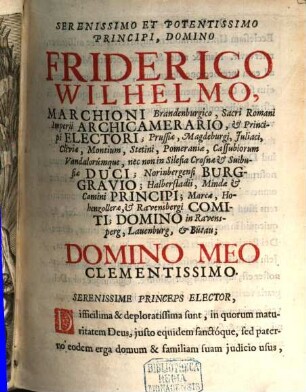 SERENISSIMO ET POTENTISSIMO
PRINCIPI, DOMINO
FRIDERICO
WILHELMO,
MARCHIONI Brandenburgico, Sacri Romani
Imperii ARCHICAMERARIO, & Princi-
pi ELECTORI; Prussiæ, Magdeburgi, Juliaci,
Cliviæ, Montium, Stetini, Pomeraniæ, Cassubiorum
Vandalorúmque, nec non in Silesia Crosnæ & Suibu-
siæ DUCI; Noribergensi BURG-
GRAVIO; Halberstadii, Mindæ &
Camini PRINCIPI; Marcæ, Ho-
henzolleræ, & Ravensbergi COMI-
TI: DOMINO in Ravens-
perg, Lauenburg, & Bütau;
DOMINO MEO
CLEMENTISSIMO.
SERENISSIME PRINCEPS ELECTOR,
Difficilima & deploratissima sunt, in quorum matu-
ritatem Deus, justo equidem sanctóque, sed pater-
no eodem erga domum & familiam suam judicio usus,
BIBLIOTHECA
REGIA
MONACENSIS